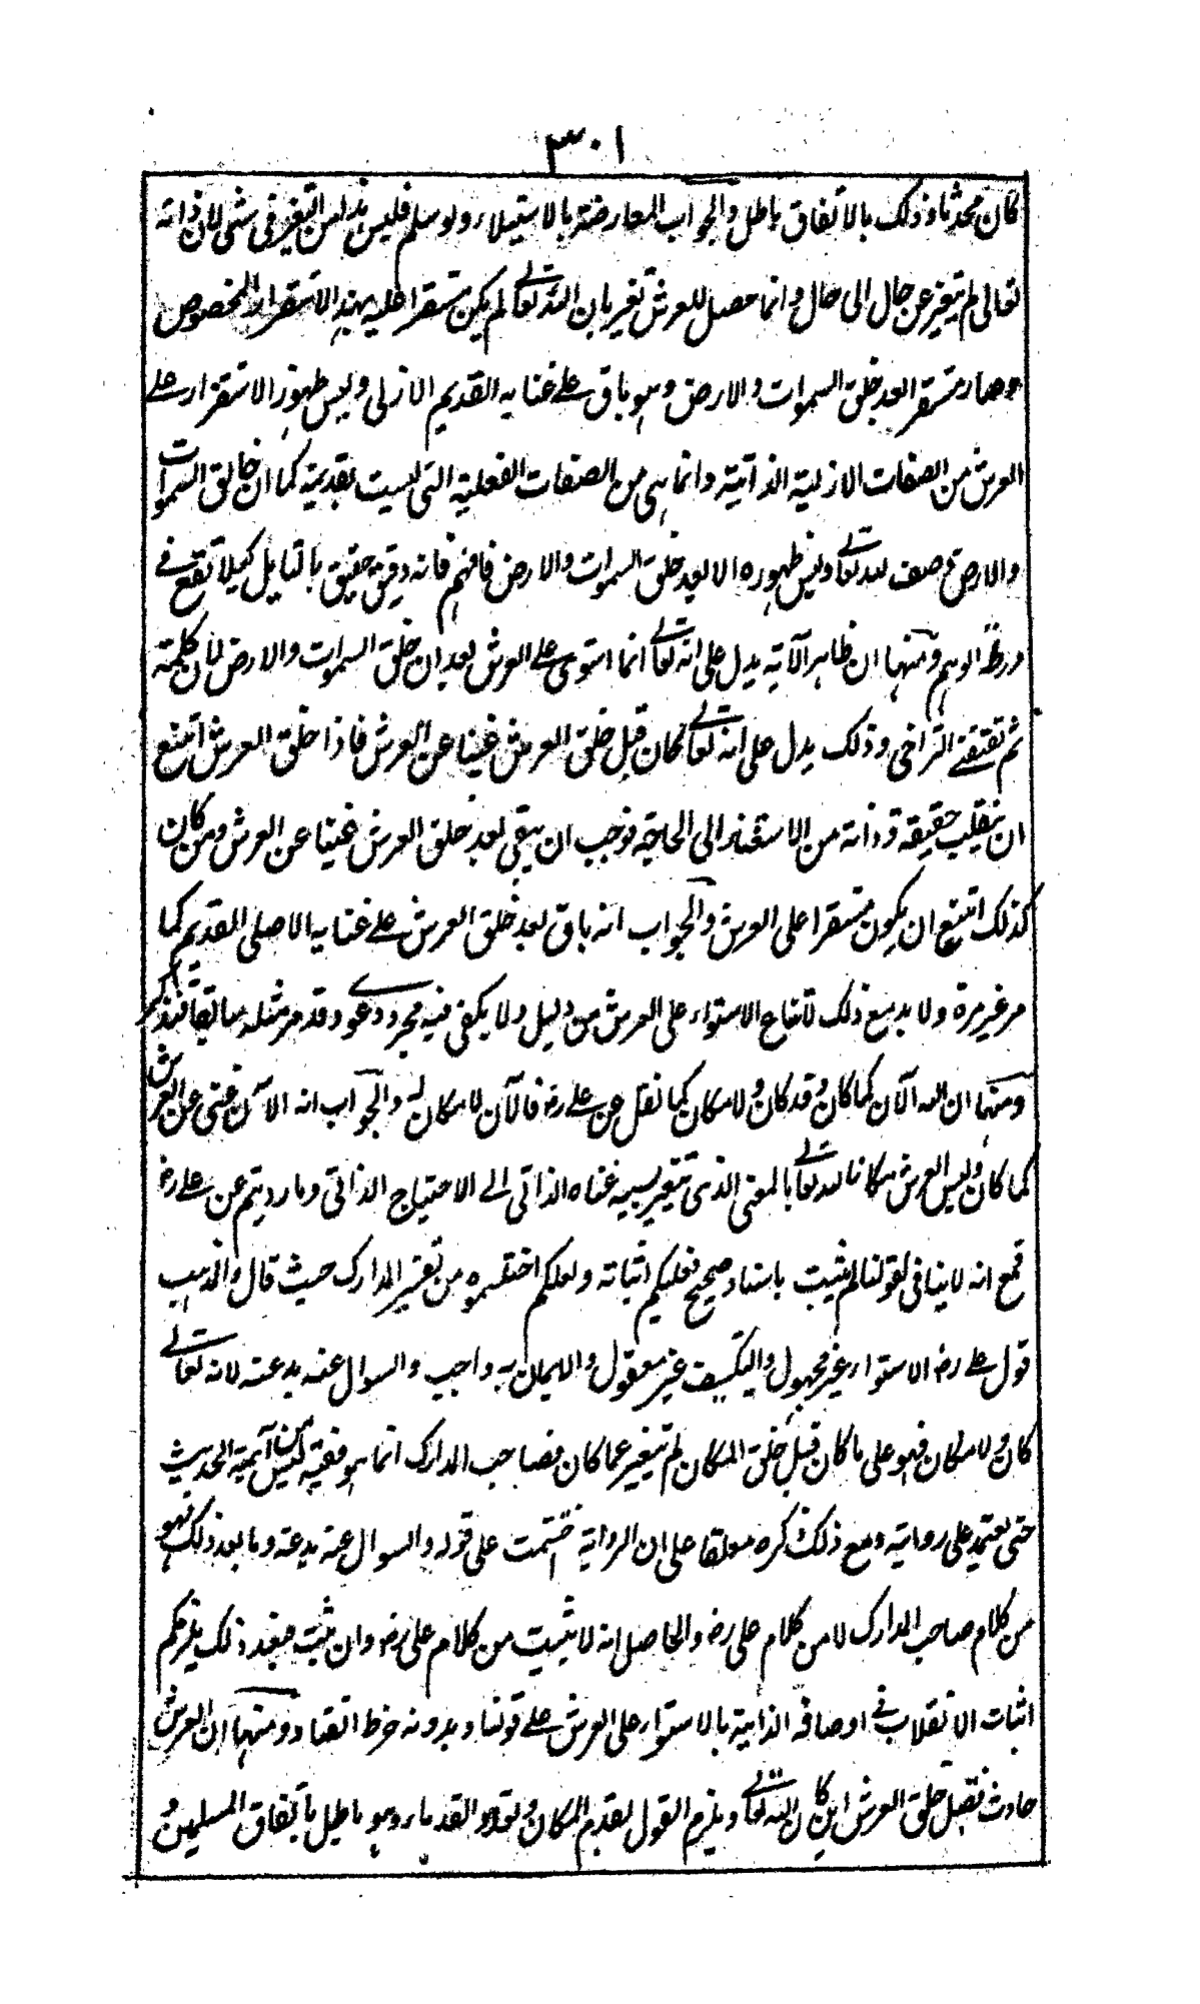 ٣٠١
كان محدثا وذلك بالاتفاق باطل والجواب المعارضة بالاستيلاء ولو سلم فليس هذا من التغير فى شئ لان ذاته
تعالى لم يتغير عن حال الى حال وانما حصل للعرش تغير بان الله تعالے لم يكن مستقرا عليه بهذا الاستقرار المخصوص
وصار مستقرا بعد خلق السموات والارض وهو باق علے غنايه القديم الازلى وليس ظهور الاستقرار علے
العرش من الصفات الازلية الذاتية وانما هى من الصفات الفعلية التى ليست بقديمة كما ان خالق السموات
والارض وصف لله تعالے وليس ظهوره الا بعد خلق السموات والارض فافهم فانه دقيق حقيق بالتامل كيلا تقع فے
ورطة الوهم ومنها ان ظاهر الآية يدل على انه تعالے انما استوى علے العرش بعد ان خلق السموات والارض لان كلمة
ثم تقتضے التراخى وذلك يدل على انه تعالے كان قبل خلق العرش غنيا عن العرش فاذا خلق العرش امتنع
ان ينقلب حقيقته وذاته من الاستغناء الى الحاجة فوجب ان يبقى بعد خلق العرش غنيا عن العرش ومن كان
كذلك امتنع ان يكون مستقرا على العرش والجواب انه باق بعد خلق العرش علے غنايه الاصلى القديم كما
مر غير مرة ولا بد مع ذلك لامتناع الاستواء على العرش من دليل ولا يكفى فيه مجرد دعوے وقد مر مثله سابقا فتذكر
ومنها ان الله الآن كما كان وقد كان ولا مكان كما نقل عن علے رض فالآن لا مكان له والجواب انه الآن غنى عن العرش
كما كان وليس العرش مكانا لله تعالے بالمعنى الذى تتغير بسببه غناه الذاتى الے الاحتياج الذاتى وما رديتم عن علے رض
فمع انه لا ينافى لقولنا لم يثبت باسناد صحيح فعليكم اثباته ولعلكم اختلستموه من تفسير المدارك حيث قال والمذهب
قول علے رض الاستواء غير مجهول والتكييف غير معقول والايمان به واجب والسوال عنه بدعته لانه تعالے
كان ولا مكان فهو على ما كان قبل خلق المكان لم يتغير عما كان فصاحب المدارك انما هو فقيه ليس من آئمة الحديث
حتى يعتمد على روايته ومع ذلك ذكره معلقا على ان الرواية ختمت على قوله والسوال عنه بدعته وما بعد ذلك فهو
من كلام صاحب المدارك لا من كلام على رض والحاصل انه لا يثبت من كلام على رض وان ثبت فبعد ذلك يلزمكم
اثبات الانقلاب فے اوصافه الذاتية بالاستواء على العرش علے قولنا ودونه خرط القتاد ومنها ان العرش
حادث فقبل خلق العرش اين كان الله تعالے ويلزم القول بقدم المكان وتعدد القدماء وهو باطل باتفاق المسلمين و